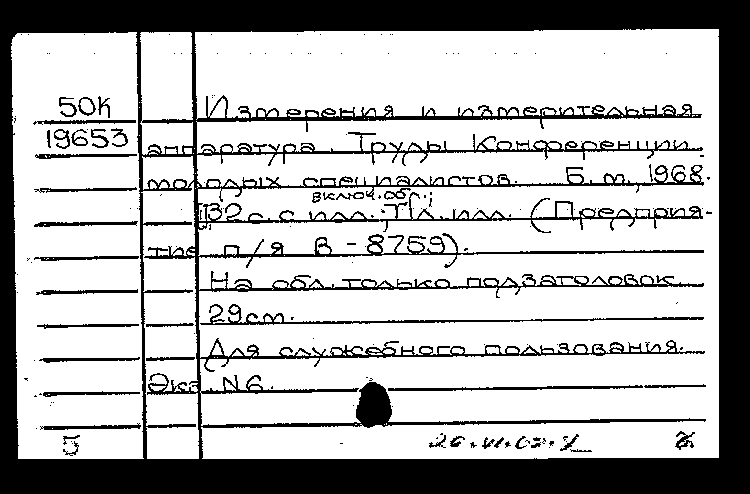 50К Измерения и измерительная
19653 аппаратура. Труды Конференции
молодых специалистов. Б. м., 1968.
включ. обл.;
132 с. с илл.; 11 л. илл. (Предприя-
тие п/я В - 8759).
На обл. только подзаголовок.
29см.
Для служебного пользования.
Экз. N6.